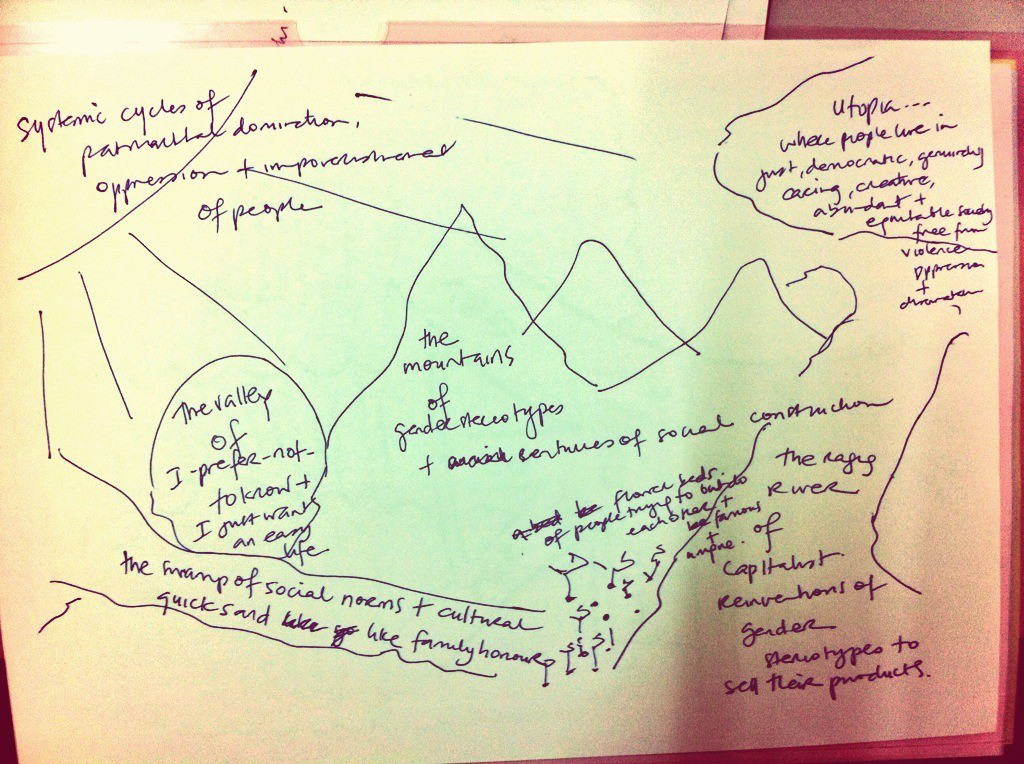 systemic cycles of
patriarchal domination,
oppression + impoverishment
of people
utopia...
where people live in
just, democratic, genuinely
caring, creative,
abundant +
equitable society
free from
violence
oppression
+
domination
the
mountains
of
gender stereotypes
+ centuries of social construction
The valley
of
I-prefer-not-
to know +
I just want
an easy
life
the swamp of social norms + cultural
quicksand like family honour
flower beds
of people trying to outdo
each other +
be famous
+
unique.
the raging
River
of
Capitalist
Reinventions of
gender
stereotypes to
sell their products.